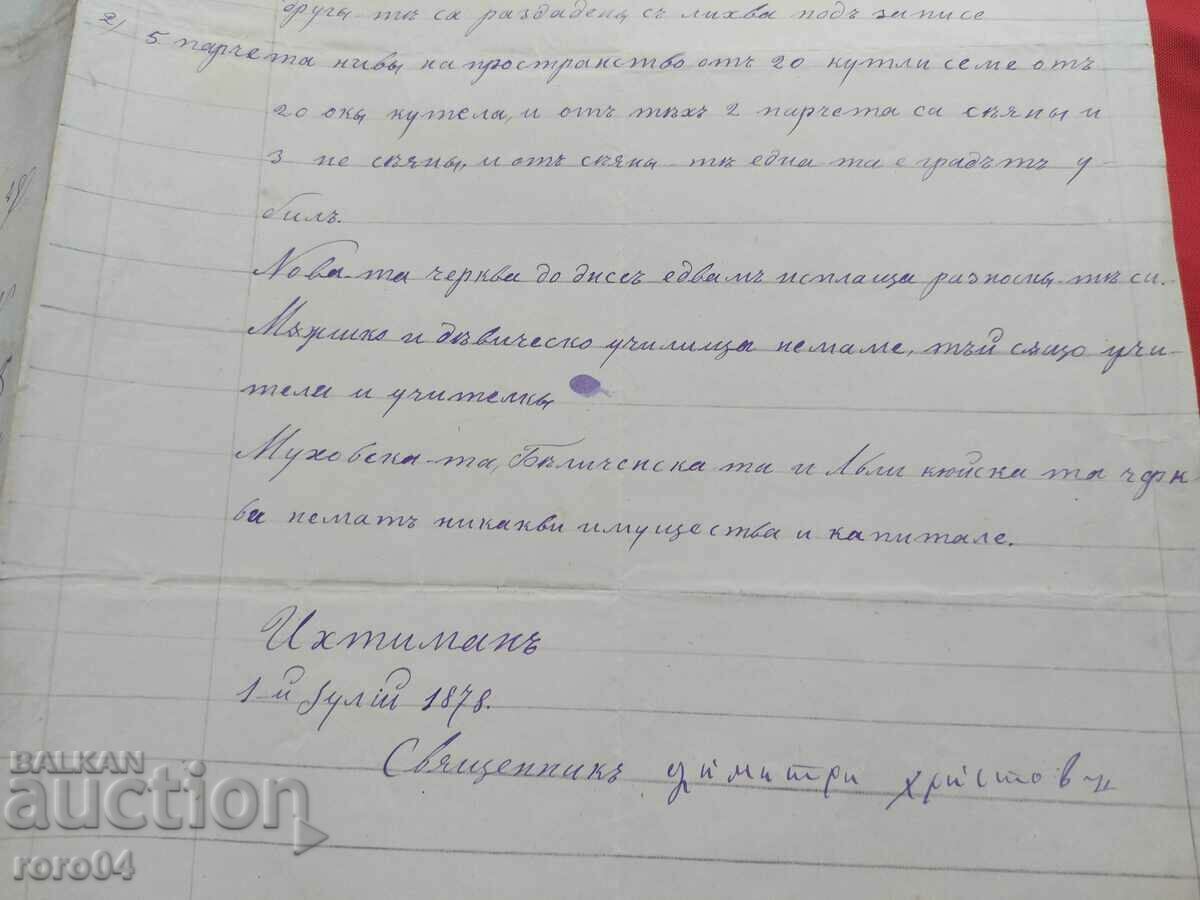 другы-тѣ са раздадены съ лихва подъ записе
2) 5 парчета нивы на пространство отъ 20 кутли семе отъ
20 окы кутела, и отъ тѣхъ 2 парчета са сѣяны и
3 не сѣяны, и отъ сѣяны-тѣ една та е градътъ у-
билъ.
Нова-та черква до днесъ едвамъ исплаща разноскы-тѣ си.
Мѫжшко и дѣвическо училища немаме, тъй сѫщо учи-
тела и учителкы
Муховска-та, Бѣличенска та и Ѣли кюйска та чърк
ва немать никакви имущества и капитале.
Ихтиманъ
1-й Јулій 1878.
Священникъ Димитри Христовъ
BALKAN
auction
roro04